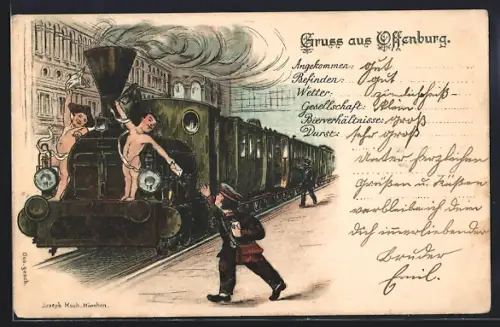 Gruss aus Offenburg.
Angekommen: Gut
Befinden: gut
Wetter: ziemlich
Gesellschaft: Klein
Bierverhältnisse: groß
Durst: sehr groß
Unter herzlichen
Grüßen u. Küssen
verbleibe ich dein
dich immerliebender
Bruder
Emil.
Ges. gesch.
Joseph Koch, München.